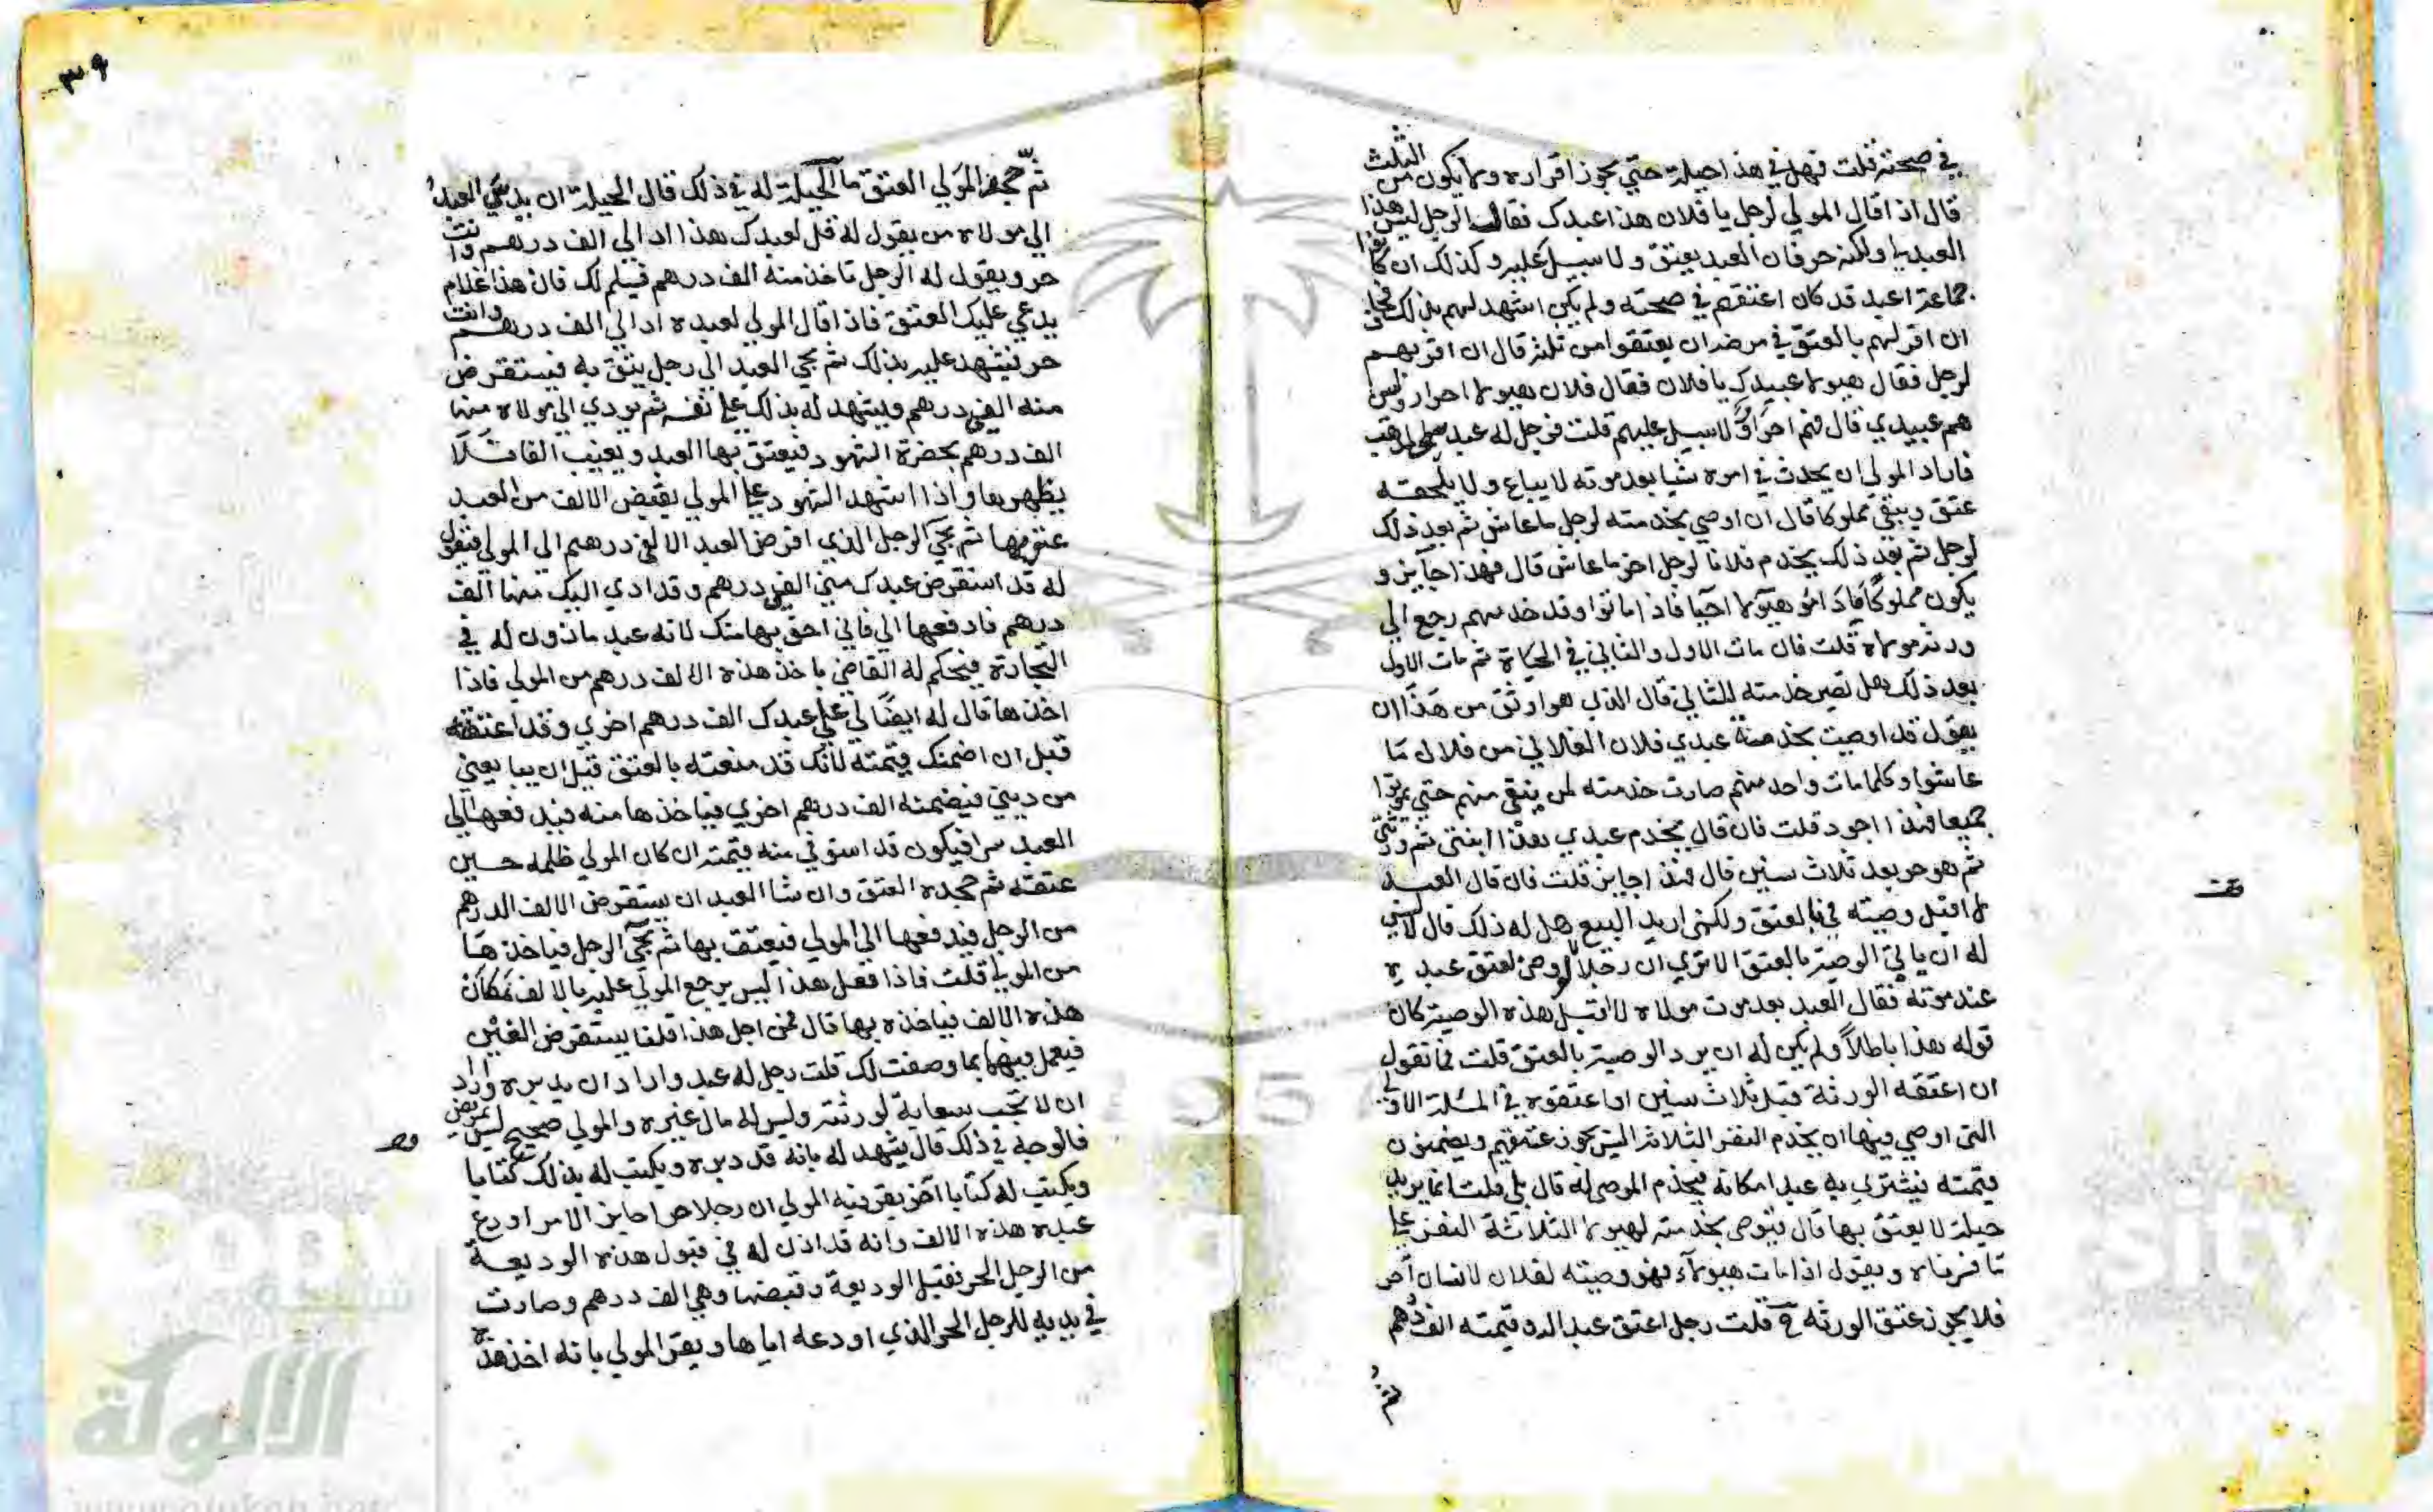 في صحته قلت فهل في هذا حيلة حتى يجوز اقراره ولا يكون من الثلث
قال اذا قال المولي لرجل يا فلان هذا عبدك فقال الرجل ليس هذا
العبد لي ولكنه حر فان العبد يعتق ولا سبيل عليه وكذلك ان كانوا
جماعة اعبد قد كان اعتقهم في صحته ولم يكن اشهد لهم بذلك فخاف
ان اقر لهم بالعتق في مرضه ان يعتقوا من ثلثه قال ان اقر بهم
لرجل فقال هيولا عبيدك يا فلان فقال فلان هيولا احرار وليس
هم عبيدي قال فهم احرار ولا سبيل عليهم قلت فرجل له عبد
فاراد المولي ان يحدث في امره شيا بعد موته لا يباع ولا يلحقه
عتق ويبقي مملوكا قال ان اوصي بخدمته لرجل ما عاش ثم بعد ذلك
لرجل ثم بعد ذلك يخدم فلانا لرجل اخر ما عاش قال فهذا جايز و
يكون مملوكا مادام هيولا احيا فاذا ماتوا وقد خدمهم رجع الي
ورثة مولاه قلت فان مات الاول والثاني في الحياة ثم مات الاول
بعد ذلك هل تصير خدمته للثاني قال الذي هو اوثق من هذا ان
يقول قد اوصيت بخدمة عبدي فلان الفلاني من فلان ما
عاشوا وكلما مات واحد منهم صارت خدمته لمن بقي منهم حتي يموتوا
جميعا فهذا اجود قلت فان قال يخدم عبدي هذا ابنتي ثم ورثتي
ثم هو حر بعد ثلاث سنين قال فهذا جايز قلت فان قال العبد
لا اقبل وصيته في بالعتق ولكني اريد البيع هل له ذلك قال لا ليس
له ان يابي الوصية بالعتق الا تري ان رجلا لو اوصى لعتق عبده
عند موته فقال العبد بعد موت مولاه لا اقبل هذه الوصية كان
قوله هذا باطلاً ولم يكن له ان يرد الوصية بالعتق قلت فما تقول
ان اعتقه الورثة قبل ثلاث سنين او اعتقوه في المسئلة الاولى
التي اوصي فيها ان يخدم النفر الثلاثة اليس يجوز عتقهم ويضمنون
قيمته فيشتري به عبدا مكانه فيخدم الموصى له قال بلي قلت انما يريد
حيلة لا يعتق بها قال فيوصى بخدمته لهيولا الثلاثة النفر علي
ما فسرناه ويقول اذا مات هيولاء فهو وصيته لفلان لانسان اخر
فلا يجوز عتق الورثه قلت رجل اعتق عبدا له وقيمته الف درهم
ثم
٣٩
ثم جحد المولي العتق ما الحيلة له في ذلك قال الحيلة ان يدس العبد
الي مولاه من يقول له قل لعبدك هذا اد الي الف درهم وانت
حر ويقول له الرجل تاخذ منه الف درهم فيسلم لك فان هذا غلام
يدعي عليك العتق فاذا قال المولي لعبده اد الي الف درهم وانت
حر فيشهد عليه بذلك ثم يجي العبد الي رجل يثق به فيستقرض
منه الفي درهم ويشهد له بذلك علي نفسه ثم يودي الي مولاه منها
الف درهم بحضرة الشهود فيعتق بها العبد ويغيب الفا فلا
يظهرها واذا اشهد الشهود علي المولي بقبض الالف من العبد
عتق بها ثم يجي الرجل الذي اقرض العبد الالفي درهم الي المولي فيقول
له قد استقرض عبدك مني الفي درهم وقد ادي اليك منها الف
درهم فادفعها الي فاني احق بها منك لانه عبد ماذون له في
التجارة فيحكم له القاضي باخذ هذه الالف درهم من المولي فاذا
اخذها قال له ايضا لي علي عبدك الف درهم اخري وقد اعتقته
قبل ان اضمنك قيمته لانك قد منعته بالعتق قبل ان يبايعني
من ديني فيضمنه الف درهم اخري فياخذها منه فيدفعها الي
العبد سرا فيكون قد استوفي منه قيمته ان كان المولي ظلمه حين
عتقه ثم جحده العتق وان شا العبد ان يستقرض الالف الدرهم
من الرجل فيدفعها الي المولي فيعتق بها ثم يجي الرجل فياخذها
من المولي قلت فاذا فعل هذا اليس يرجع المولي عليه بالالف مكان
هذه الالف فياخذه بها قال فمن اجل هذا قلنا يستقرض الفين
فيعمل فيهما بما وصفت لك قلت رجل له عبد واراد ان يدبره واراد
ان لا تجب سعاية لورثته وليس له مال غيره والمولي صحيح ليس بمريض
فالوجه في ذلك قال يشهد له بانه قد دبره ويكتب له بذلك كتابا
ويكتب له كتابا اخر يقر فيه المولي ان رجلا حرا جايز الامر اودع
عبده هذه الالف وانه قد اذن له في قبول هذه الوديعة
من الرجل الحر فقبل الوديعة وقبضها وهي الف درهم وصارت
في يديه للرجل الحر الذي اودعه اياها ويقر المولي بانه اخذ هذه
الألوكة